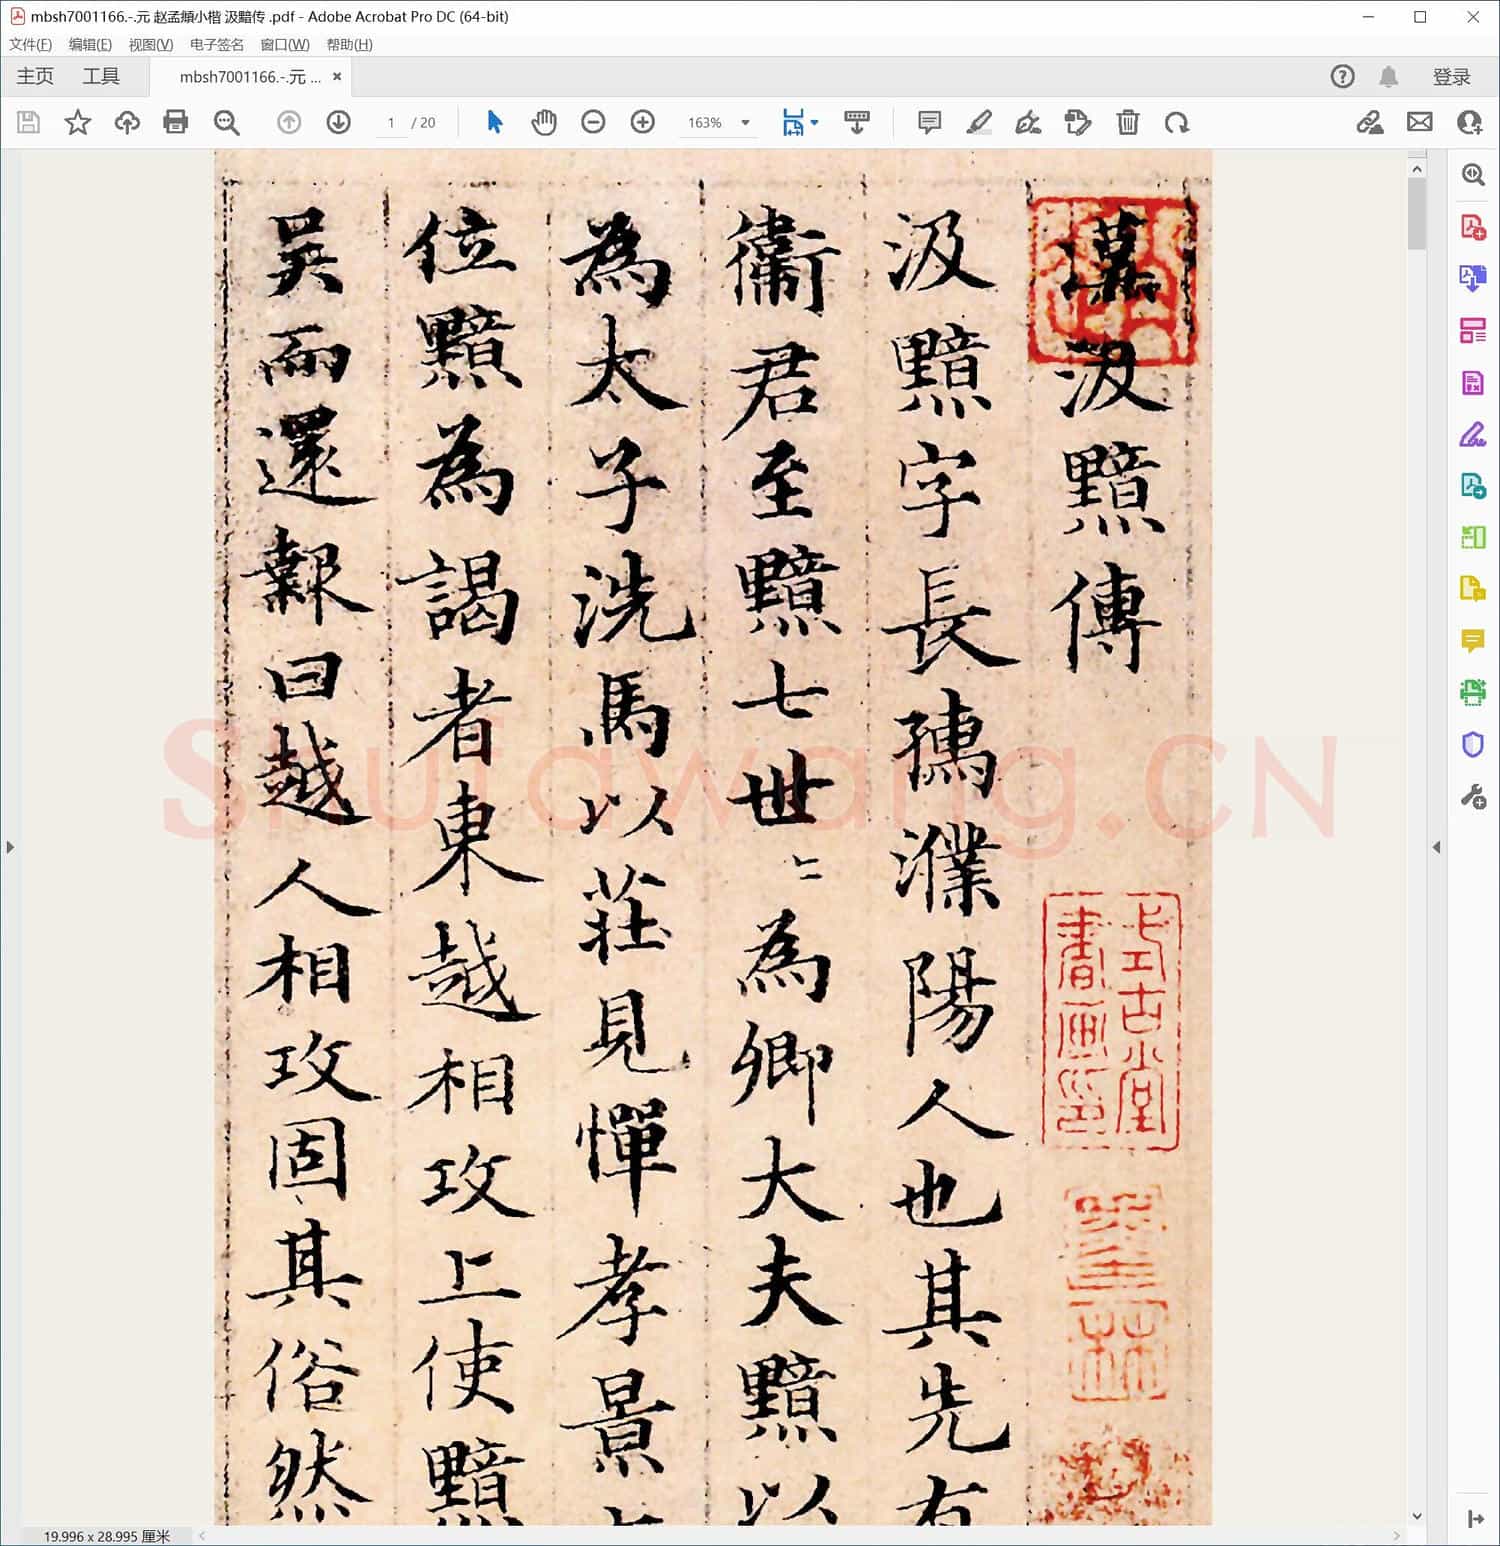 mbsh7001166.-.元 赵孟頫小楷 汲黯传 .pdf - Adobe Acrobat Pro DC (64-bit)
文件(F) 编辑(E) 视图(V) 电子签名 窗口(W) 帮助(H)
主页 工具 mbsh7001166.-.元 ... × 登录
1 / 20 163%
漢汲黯傳
汲黯字長孺濮陽人也其先有
衛君至黯七世〻為卿大夫黯以
為太子洗馬以莊見憚孝景
位黯為謁者東越相攻上使黯
吴而還報曰越人相攻固其俗然
式古堂
書画印
Shufawang.CN
19.996 x 28.995 厘米